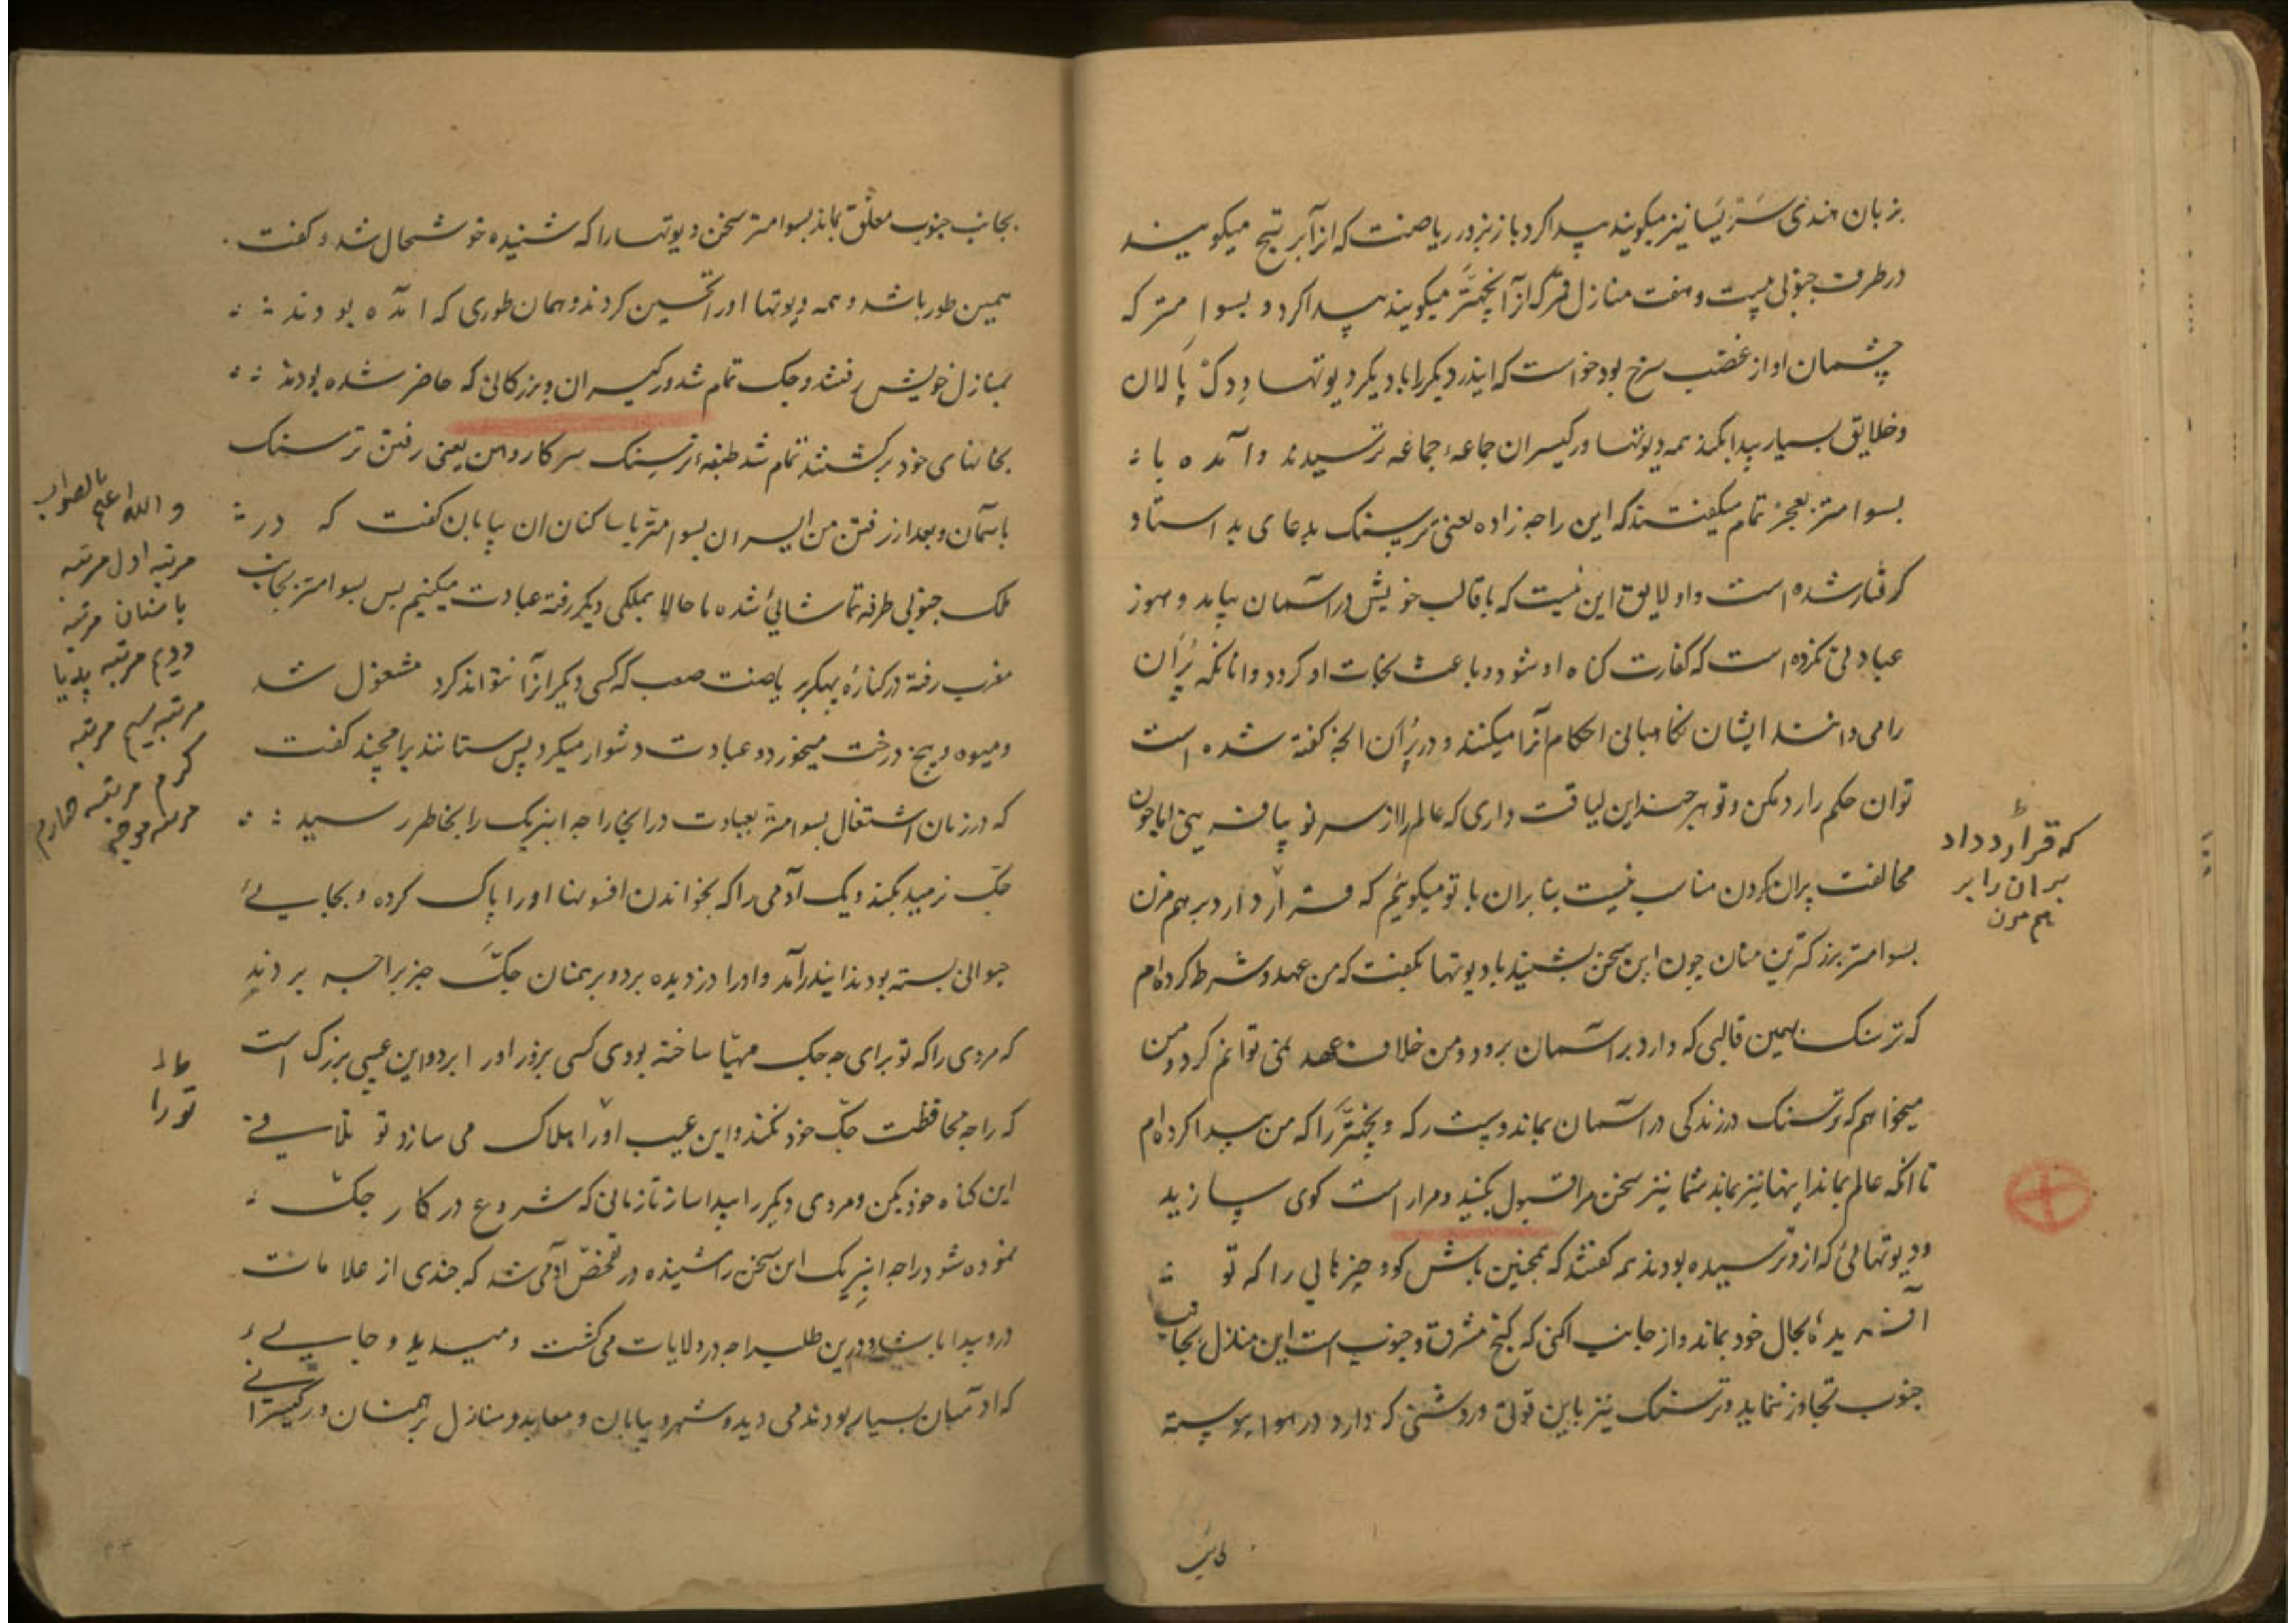 بزبان هندی سَرِیسَا نیز میکویند پیدا کرد باز بزور ریاضت که انرا بر تبح میکویند
در طرف جنوبی بیست و هفت منازل قمر که انرا نچهتّر میکویند پیدا کرد و بسوامتر که
چشمان او از غضب سرخ بود خواست که ایندر دیکر را با دیکر دیوتها و دک پالان
و خلایق بسیار پیدا بکند همه دیوتها و رکیسران جماعه جماعه ترسیدند و آمده با
بسوامتر بعجز تمام میکفتند که این راجه زاده یعنی ترسنک بدعای بد استاد
کرفتار شده است و او لایق این نیست که با قالب خویش در آسمان بیاید و هنوز
عبادتی نکرده است که کفارت کناه او شود و باعث نجات او کردد و انانکه پُرَان
را می دانند ایشان نکاهبانی احکام آنرا میکنند و در پُرَان انچه کفته شده است
تو ان حکم را رد مکن و تو هر چند این لیاقت داری که عالم را از سر نو بیافرینی اما چون
مخالفت پران کردن مناسب نیست بنابران با تو میکوییم که قرارداد را بر هم مزن
بسوامتر بزرکترین منان چون این سخن بشنید با دیوتها بکفت که من عهد و شرط کرده ام
که ترسنک بهمین قالبی که دارد بر آسمان برود و من خلاف عهد نمی توانم کرد و من
میخواهم که ترسنک در زندکی در آسمان بماند و سپت رکه و نچهتّر را که من پیدا کرده ام
تا انکه عالم بماند اینها نیز بماند شما نیز سخن مرا قبول بکنید و مرا راست کوی سازید
و دیوتهائی که ازو ترسیده بودند همه کفتند که همچنین باش کو و چیزهایی را که تو
آفریدهٔ بحال خود بماند و از جانب اکنی که کنج مشرق و جنوب است این منازل بجانب
جنوب تجاوز ننماید و ترسنک نیز باین قوتی و روشنی که دارد در هوا پیوسته
که قرارداد
بران را بر
هم مزن
بجانب جنوب معلّق بماند بسوامتر سخن دیوتها را که شنیده خوشحال شد و کفت
همین طور باشد و همه دیوتها او را تحسین کردند و همان طوری که امده بودند
بمنازل خویش رفتند و جک تمام شد و رکیسران و بزرکانی که حاضر شده بودند
بخانهای خود برکشتند تمام شد طنبهٔ ترسنک سرکاروهن یعنی رفتن ترسنک
باسمان و بعد از رفتن من ایسران بسوامتر با ساکنان ان بیابان کفت که در
ملک جنوبی طرفه تماشائی شده ما حالا بملکی دیکر رفته عبادت میکنیم پس بسوامتر بجانب
مغرب رفته در کنارهٔ پهکر بریاضت صعب که کسی دیکر انرا نتواند کرد مشغول شد
و میوه و بیخ درخت میخورد و عبادت دشوار میکرد پس ستانند برامچند کفت
که در زمان اشتغال بسوامتر بعبادت در انجا راجه انبریک را بخاطر رسید
جک نرمید بکند و یک آدمی را که بخواندن افسونها او را پاک کرده و بجایی
جوانی بسته بودند ایندر آمد و او را دزدیده برد و برهمنان جکَّ خبر براجه بردند
که مردی را که تو برای جه جک مهیّا ساخته بودی کسی بزور او را برد و این عیبی بزرک است
که راجه محافظت جک خود نکند و این عیب او را هلاک می سازد تو تلافی
این کناه خود بکن و مردی دیکر را پیدا ساز تا زمانی که شروع در کار جکّ
نموده شود راجه انبریک این سخن را شنیده در تفحّص آدمی شد که چندی از علامات
درو پیدا باشد و درین طلب راجه در ولایات می کشت و میدید و جایی
که ادمیان بسیار بودند می دید و شهر و بیابان و معابد و منازل برهمنان و رکیسرانی
والله اعلم بالصواب
مرتبه اول مرتبه
دویم مرتبه
مرتبه سیم مرتبه
تو را